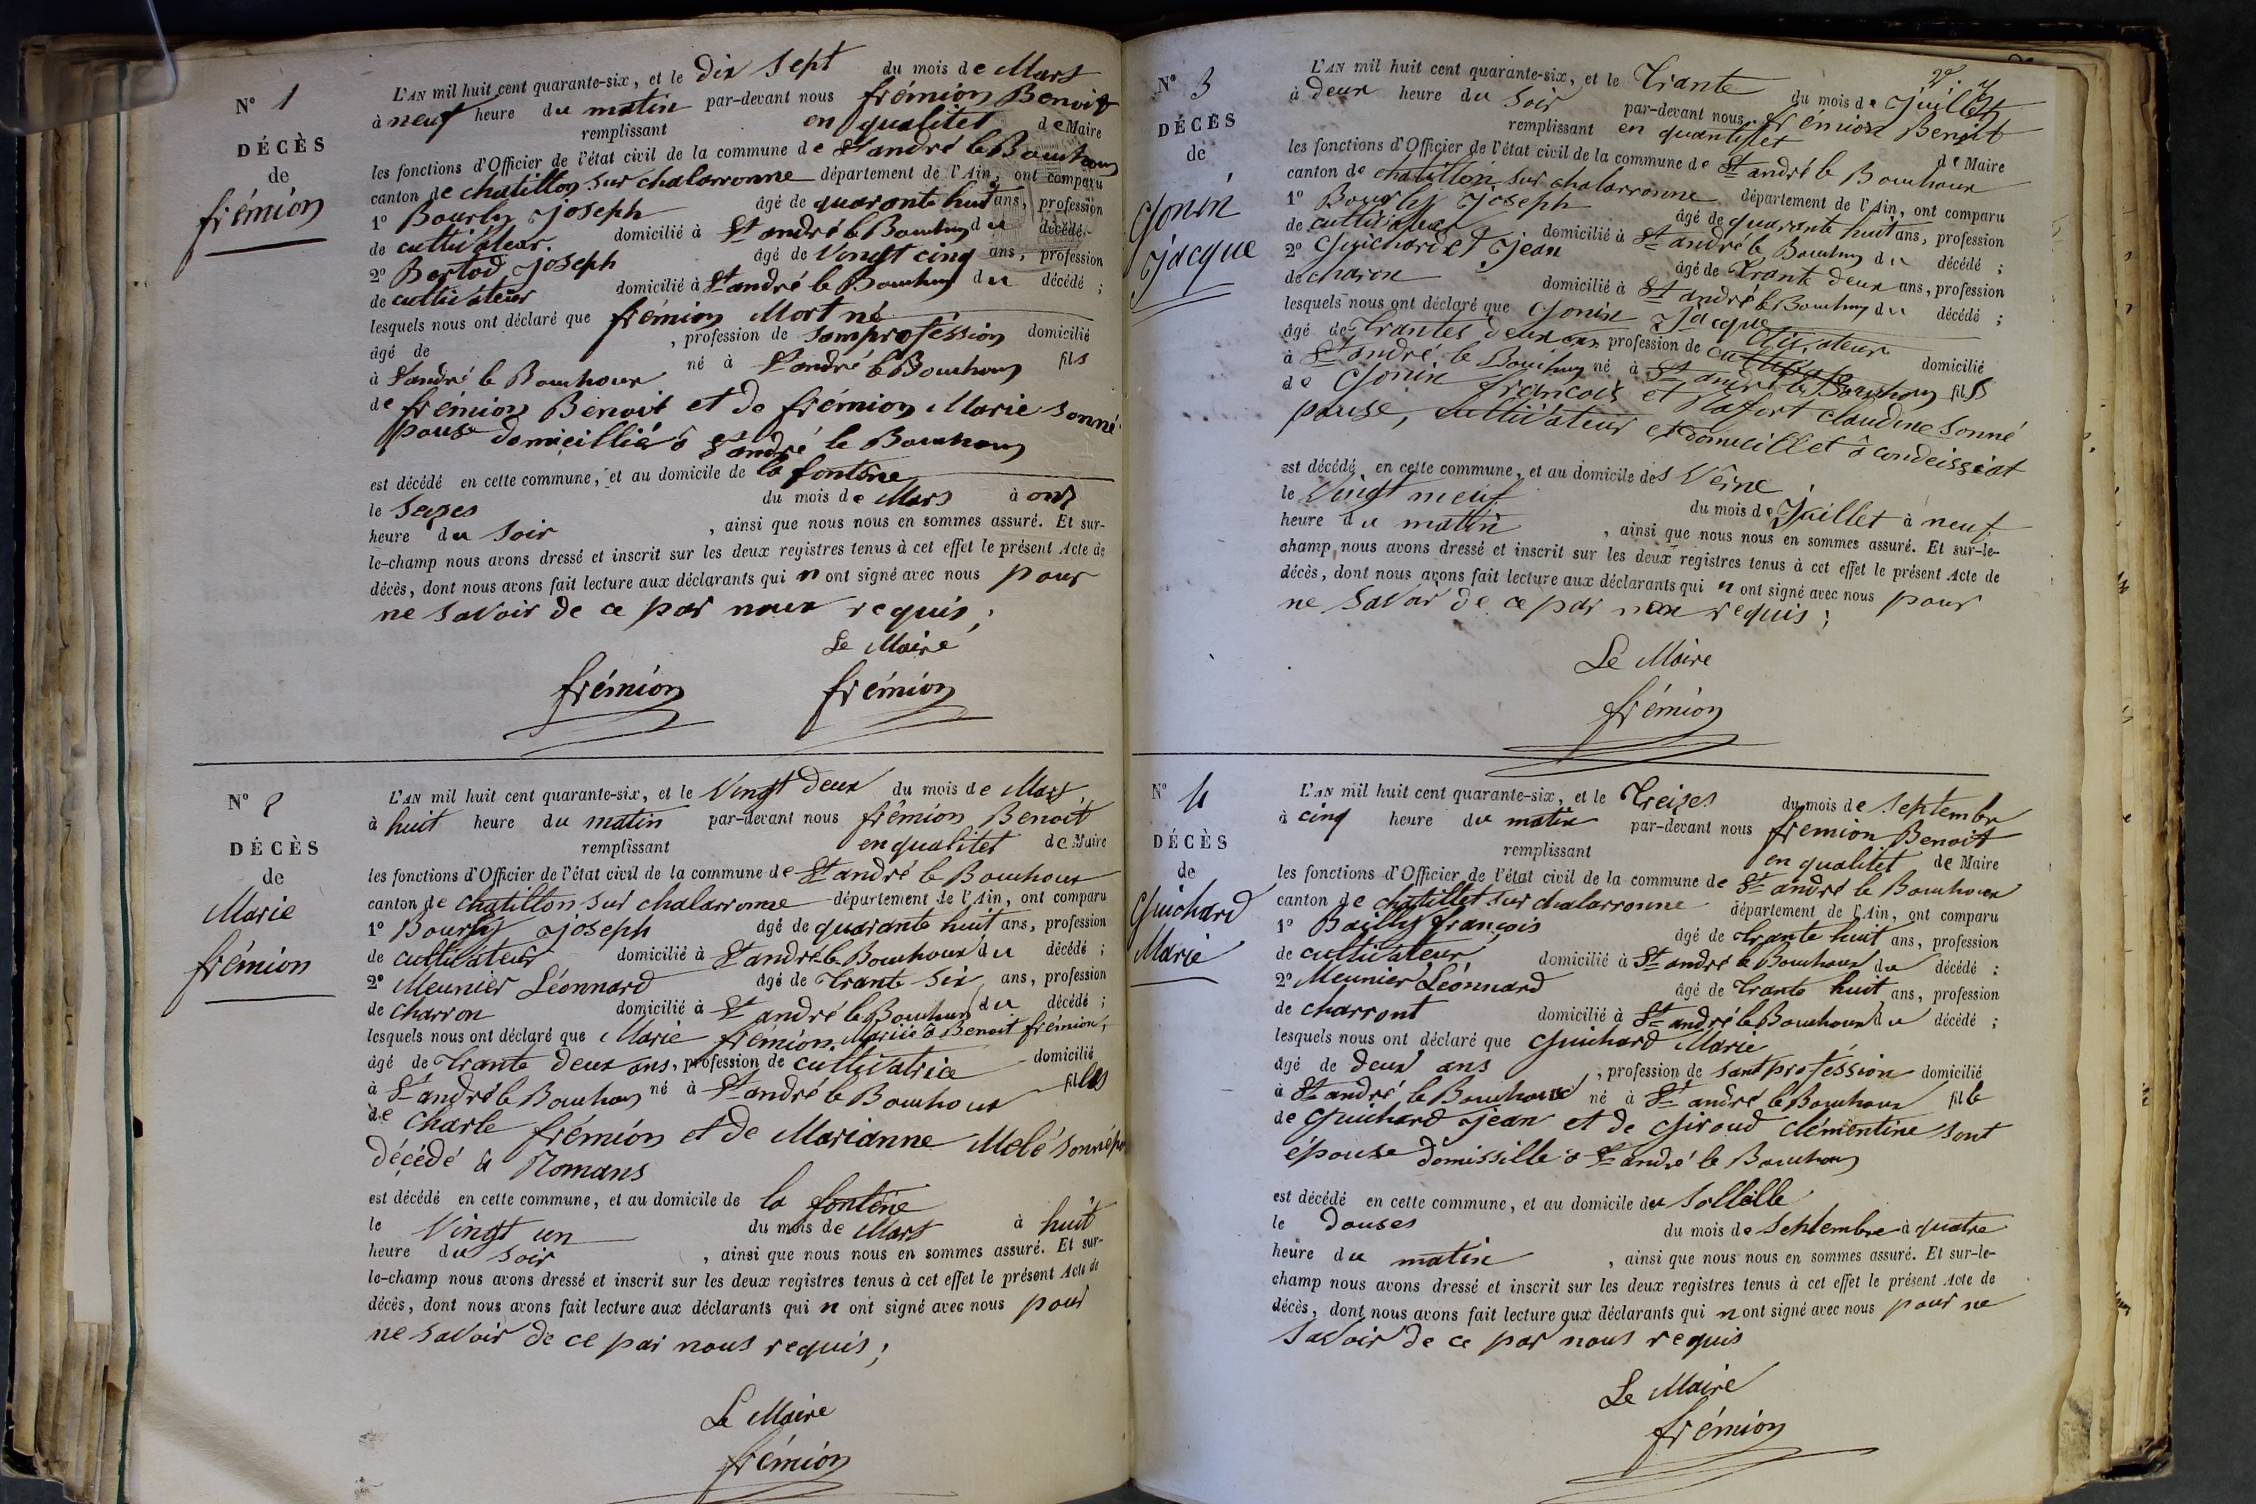 N° 1
DÉCÈS
de
frémion
L'AN mil huit cent quarante-six, et le dix sept du mois de Mars
à neuf heure du matin par-devant nous frémion Benoit
remplissant en qualitet de Maire
les fonctions d'Officier de l'état civil de la commune de St andré le Bouchoux
canton de chatillon sur chalaronne département de l'Ain, ont comparu
1° Bourly joseph âgé de quarante huit ans, profession
de cultivateur. domicilié à St andré le Bouchoux du décédé
2° Bertod joseph âgé de Vingt cinq ans, profession
de cultivateur domicilié à St andré le Bouchoux du décédé ;
lesquels nous ont déclaré que frémion Mort né
âgé de , profession de samprofession domicilié
à St andré le Bouchoux né à St andré le Bouchoux fils
de frémion Benoit et de frémion Marie sonné
pouse domicillié à St andré le Bouchoux
est décédé en cette commune, et au domicile de la fontêne
le Sezes du mois de Mars à onz
heure du soir , ainsi que nous nous en sommes assuré. Et sur-
le-champ nous avons dressé et inscrit sur les deux registres tenus à cet effet le présent Acte de
décès, dont nous avons fait lecture aux déclarants qui n ont signé avec nous pour
ne savoir de ce par nous requis ;
Le Maire
frémion frémion
N° 2
DÉCÈS
de
Marie
frémion
L'AN mil huit cent quarante-six, et le Vingt deux du mois de Mars
à huit heure du matin par-devant nous frémion Benoit
remplissant en qualitet de Maire
les fonctions d'Officier de l'état civil de la commune de St andré le Bouchoux
canton de chatillon sur chalarronne département de l'Ain, ont comparu
1° Bourly joseph âgé de quarante huit ans, profession
de cultivateur domicilié à St andré le Bouchoux du décédé ;
2° Meunier Léonnard âgé de trante six ans, profession
de charron domicilié à St andré le Bouchoux du décédé ;
lesquels nous ont déclaré que Marie frémion. Mariée à Benoit frémion,
âgé de trante deux ans, profession de cultivatrice domicilié
à St andré le Bouchoux né à St andré le Bouchoux filles
de Charle frémion et de Marianne Melé sonné po
décédé à Romans
est décédé en cette commune, et au domicile de la fontêne
le Vingt un du mois de Mars à huit
heure du soir , ainsi que nous nous en sommes assuré. Et sur-
le-champ nous avons dressé et inscrit sur les deux registres tenus à cet effet le présent Acte de
décès, dont nous avons fait lecture aux déclarants qui n ont signé avec nous pour
ne savoir de ce par nous requis ;
Le Maire
frémion
N° 3
DÉCÈS
de
Gonin
Jacque
L'AN mil huit cent quarante-six, et le Trante du mois de juillet
à deux heure du soir par-devant nous frémion Benoit
remplissant en quantitet de Maire
les fonctions d'Officier de l'état civil de la commune de St andré le Bouchoux
canton de chatillon sur chalarronne département de l'Ain, ont comparu
1° Bourly Joseph âgé de quarante huit ans, profession
de cultivateur domicilié à St andré le Bouchoux du décédé ;
2° Guichardet Jean âgé de trante deux ans, profession
de charon domicilié à St andré le Bouchoux du décédé ;
lesquels nous ont déclaré que Gonin Jacque
âgé de trantes deux ans profession de cultivateur domicilié
à St andré le Bouchoux né à St andré le Bouchoux fils
de Gonin francois et Rafort claudine sonné
pouse, cultivateur et domicillet à condeissiat
est décédé en cette commune, et au domicile des Verne
le Vingt neuf du mois de Juillet à neuf
heure du matin , ainsi que nous nous en sommes assuré. Et sur-le-
champ nous avons dressé et inscrit sur les deux registres tenus à cet effet le présent Acte de
décès, dont nous avons fait lecture aux déclarants qui n ont signé avec nous pour
ne savoir de ce par nous requis ;
Le Maire
frémion
N° 4
DÉCÈS
de
Guichard
Marie
L'AN mil huit cent quarante-six, et le Treizes du mois de Septembre
à cinq heure du matin par-devant nous fremion Benoit
remplissant en qualitet de Maire
les fonctions d'Officier de l'état civil de la commune de St andré le Bouchoux
canton de chatillet sur chalarronne département de l'Ain, ont comparu
1° Bailly françois âgé de trante huit ans, profession
de cultivateur domicilié à St andré le Bouchoux du décédé ;
2° Meunier Léonnard âgé de trante huit ans, profession
de charront domicilié à St andré le Bouchoux du décédé ;
lesquels nous ont déclaré que Guichard Marie
âgé de deux ans , profession de santprofession domicilié
à St andré le Bouchoux né à St andré le Bouchoux fille
de Guichard jean et de Giroud clémentine sont
épouse domissille à St andré le Bouchoux
est décédé en cette commune, et au domicile du
le douses du mois de Septembre à quatre
heure du matin , ainsi que nous nous en sommes assuré. Et sur-le-
champ nous avons dressé et inscrit sur les deux registres tenus à cet effet le présent Acte de
décès, dont nous avons fait lecture aux déclarants qui n ont signé avec nous pour ne
savoir de ce par nous requis
Le Maire
frémion